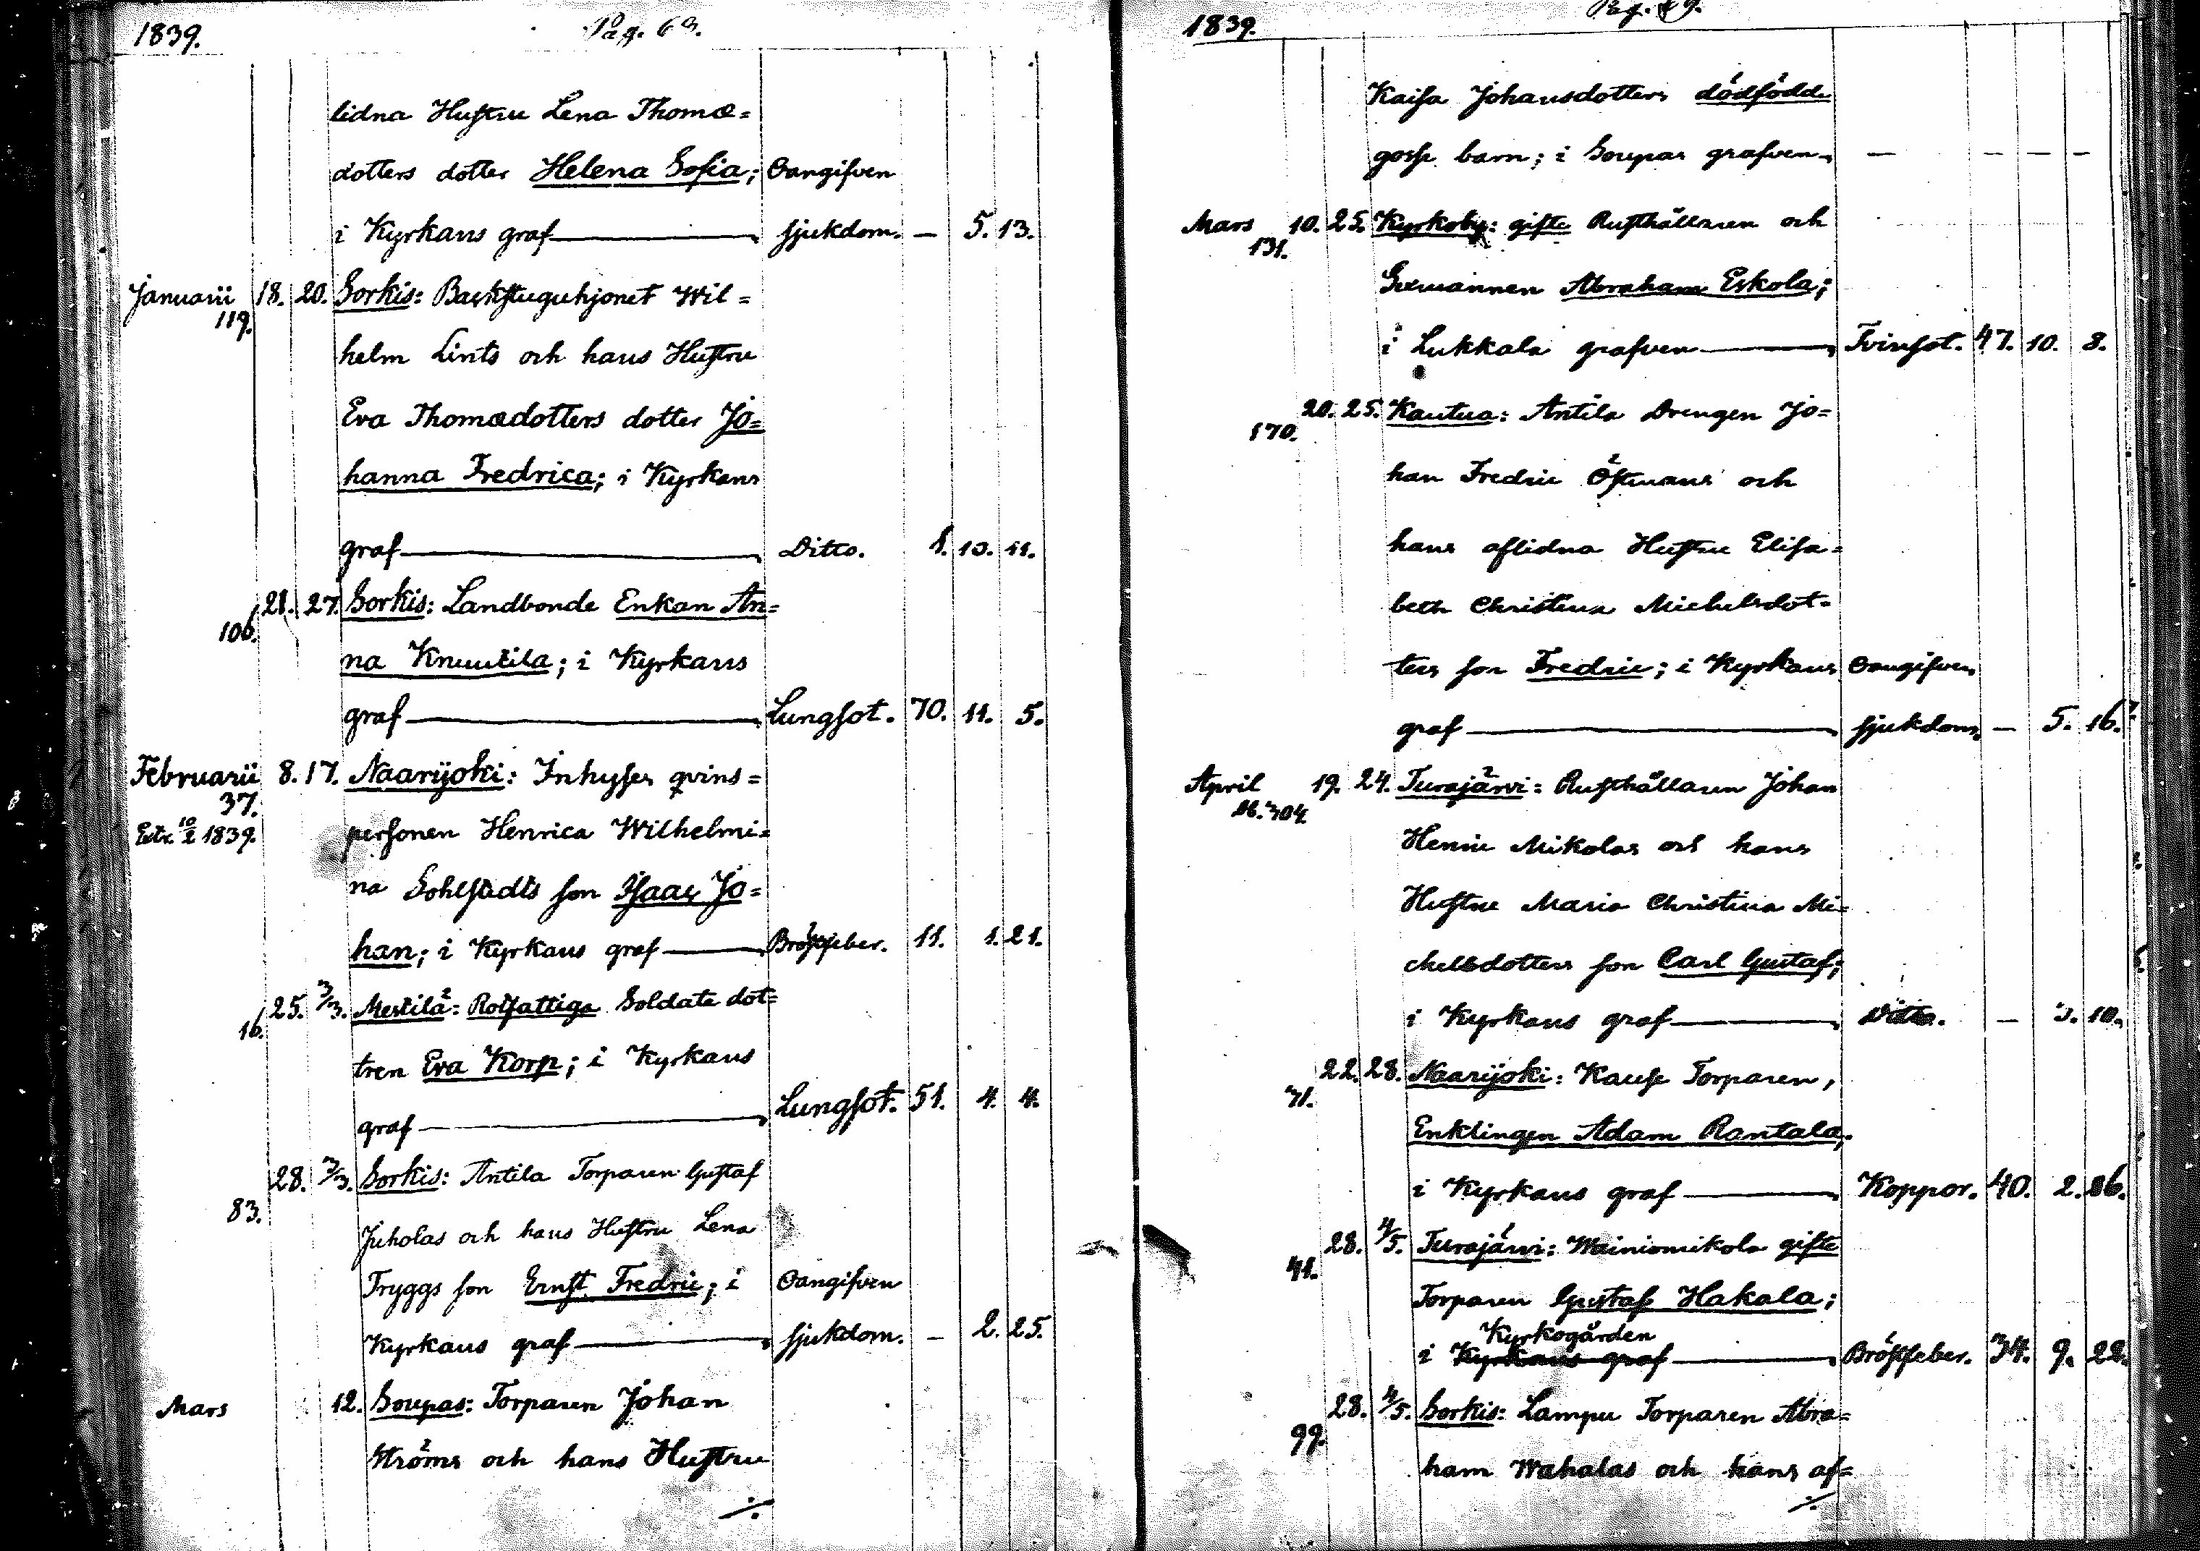 1839. Pag. 68.
lidna Hustru Lena Thomæ=
dotters dotter Helena Sofia; Oangifven
i Kyrkans graf — sjukdom. — 5. 13.
Januarii 18. 20. Sorkis: Backstuguhjonet Wil=
119.
helm Lints och hans Hustru
Eva Thomædotters dotter Jo=
hanna Fredrica; i Kyrkans
graf — Ditto. 1. 10. 11.
21. 27. Sorkis: Landbonde Enkan An=
106.
na Knuutila; i Kyrkans
graf — Lungsot. 70. 11. 5.
Februarii 8. 17. Naarijoki: Inhyses qvins=
37.
Extr. 10/2 1839. personen Henrica Wilhelmi=
na Sohlstädts son Isaac Jo=
han; i Kyrkans graf — Bröstfeber. 11. 1. 21.
25. 3/3. Mestilä: Rotfattiga Soldats dot=
16.
tren Eva Korp; i Kyrkans
graf — Lungsot. 51. 4. 4.
28. 3/3. Sorkis: Antila Torparen Gustaf
83.
Juholas och hans Hustru Lena
Tryggs son Ernst Fredric; i Oangifven
Kyrkans graf — sjukdom. — 2. 25.
Mars 12. Soupas: Torparen Johan
Ströms och hans Hustru
./.
1839. Pag. 69.
Kaisa Johansdotters dödfödde
gosse barn; i Soupas grafven — — — —
Mars 10. 25. Kyrkoby: gifte Rusthållaren och
131.
Sexmannen Abraham Eskola;
i Lukkala grafven — Tvinsot. 47. 10. 8.
20. 25. Kautua: Antila Drengen Jo=
170.
han Fredric Östmans och
hans aflidna Hustru Elisa=
beth Christina Michelsdot=
ters son Fredric; i Kyrkans Oangifven
graf — sjukdom. — 5. 16.
April 19. 24. Turajärvi: Rusthållaren Johan
304.
Henric Mikolas och hans
Hustru Maria Christina Mi=
chelsdotters son Carl Gustaf;
i Kyrkans graf — Ditto. — 3. 10.
22. 28. Naarijoki: Kause Torparen,
71.
Enklingen Adam Rantala;
i Kyrkans graf — Koppor. 40. 2. 26.
28. 4/5. Turajärvi: Wainiomikola gifte
41.
Torparen Gustaf Hakala;
Kyrkogården
i Kyrkans graf — Bröstfeber. 34. 9. 22.
28. 4/5. Sorkis: Lampu Torparen Abra=
99.
ham Wahalas och hans af=
./.